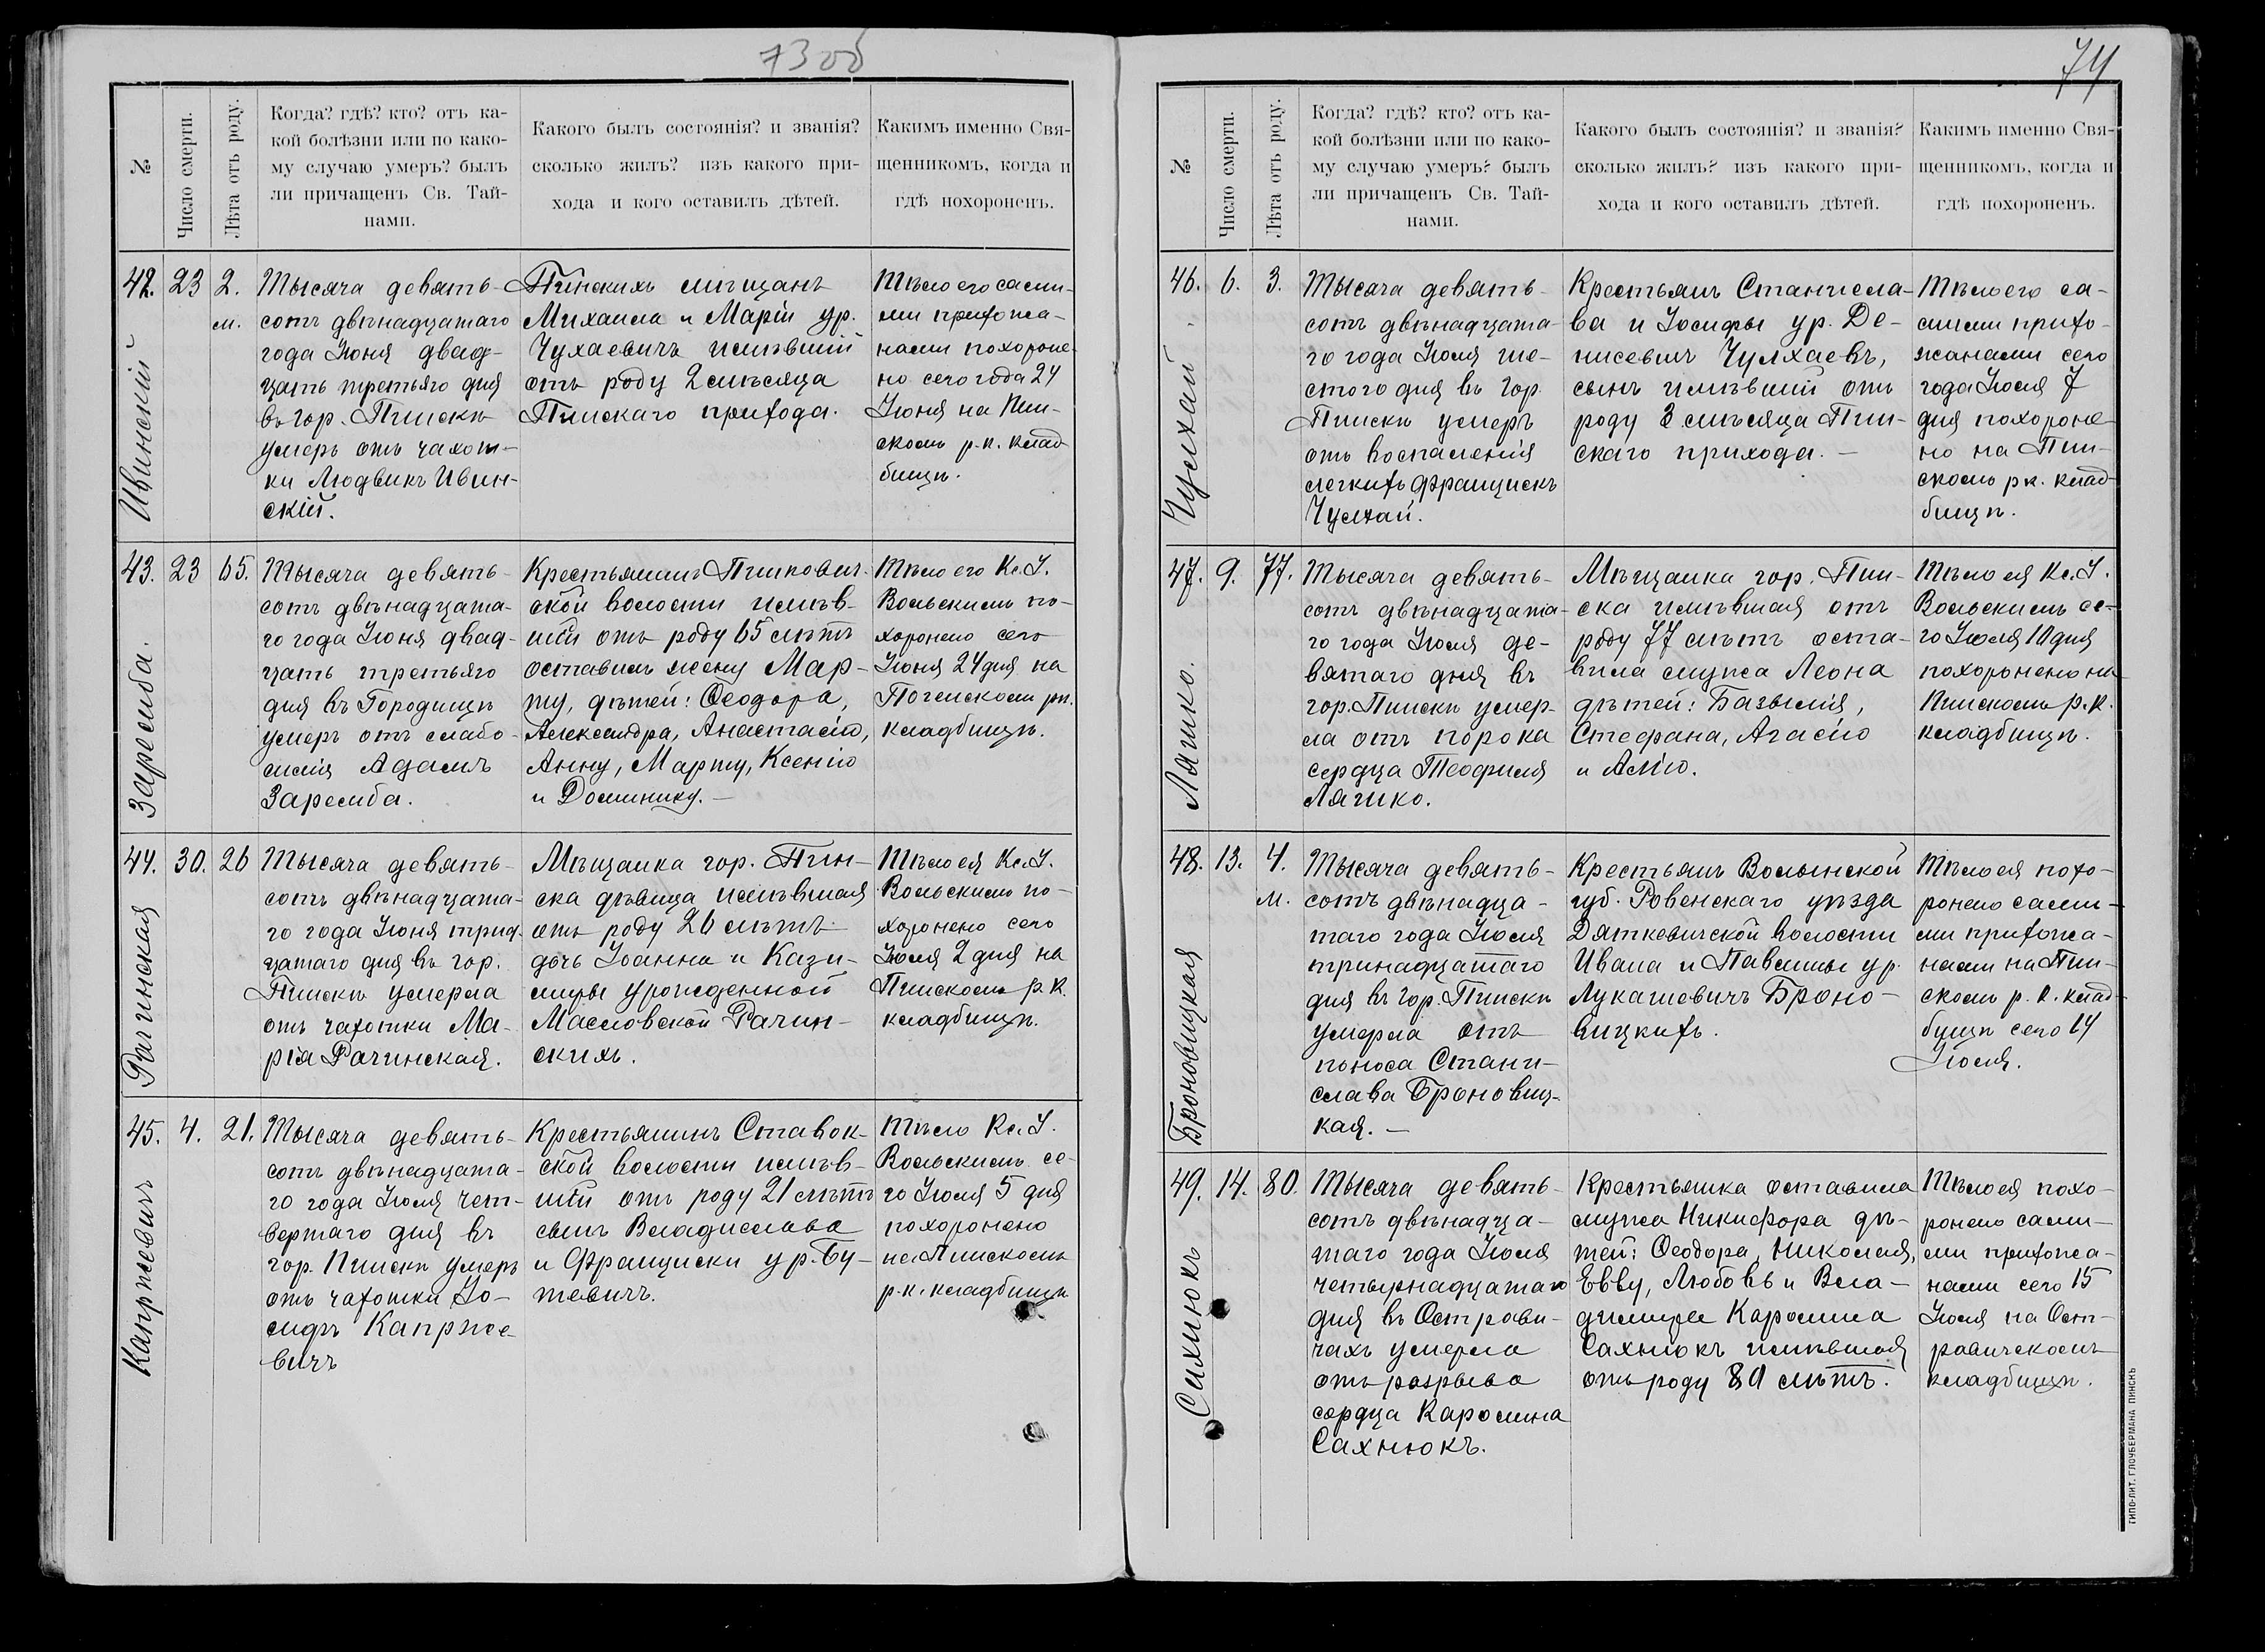 73 об
№
Число смерти.
Лѣта отъ роду.
Когда? гдѣ? кто? отъ ка-
кой болѣзни или по како-
му случаю умеръ? былъ
ли причащенъ Св. Тай-
нами.
Какого былъ состоянія? и званія?
сколько жилъ? изъ какого при-
хода и кого оставилъ дѣтей.
Какимъ именно Свя-
щенникомъ, когда и
гдѣ похороненъ.
42. 23 2.
м.
Ивинскій
Тысяча девять-
сотъ двѣнадцатаго
года Іюня двад-
цать третьяго дня
въ гор. Пинскѣ
умеръ отъ чахот-
ки Людвикъ Ивин-
скій.
Пинскихъ мѣщанъ
Михаила и Маріи ур.
Чухаевичъ имѣвшій
отъ роду 2 мѣсяца
Пинскаго прихода.
Тѣло его сами-
ми прихожа-
нами похороне-
но сего года 24
Іюня на Пин-
скомъ р.к. клад-
бищѣ.
43. 23 65.
Заремба.
Тысяча девять-
сотъ двѣнадцата-
го года Іюня двад-
цать третьяго
дня въ Городищѣ
умеръ отъ слабо-
силія Адамъ
Заремба.
Крестьянинъ Пинкович-
ской волости имѣв-
шій отъ роду 65 лѣтъ
оставилъ жену Мар-
ту, дѣтей: Ѳеодора,
Александра, Анастасію,
Анну, Марту, Ксенію
и Доминику. —
Тѣло его Кс. I.
Вольскимъ по-
хоронено сего
Іюня 24 дня на
рк.
кладбищѣ.
44. 30. 26
Рагинская
Тысяча девять-
сотъ двѣнадцата-
го года Іюня трид-
цатаго дня въ гор.
Пинскѣ умерла
отъ чахотки Ма-
рія Рачинская.
Мѣщанка гор. Пин-
ска дѣвица имѣвшая
отъ роду 26 лѣтъ
дочь Іоанна и Кази-
миры урожденной
Масловской Рачин-
скихъ.
Тѣло ея Кс. I.
Вольскимъ по-
хоронено сего
Іюля 2 дня на
Пинскомъ р.к.
кладбищѣ.
45. 4. 21.
Капржевичъ
Тысяча девять-
сотъ двѣнадцата-
го года Іюля чет-
вертаго дня въ
гор. Пинскѣ умеръ
отъ чахотки Іо-
сифъ Капрже-
вичъ
Крестьянинъ Ставок-
ской волости имѣв-
шій отъ роду 21 лѣтъ
сынъ Владислава
и Францишки ур. Бу-
тевичъ.
Тѣло Кс. I.
Вольскимъ се-
го Іюля 5 дня
похоронено
на Пинскомъ
р.к. кладбищѣ
74
№
Число смерти.
Лѣта отъ роду.
Когда? гдѣ? кто? отъ ка-
кой болѣзни или по како-
му случаю умеръ? былъ
ли причащенъ Св. Тай-
нами.
Какого былъ состоянія? и званія?
сколько жилъ? изъ какого при-
хода и кого оставилъ дѣтей.
Какимъ именно Свя-
щенникомъ, когда и
гдѣ похороненъ.
46. 6. 3.
Чулхай
Тысяча девять-
сотъ двѣнадцата-
го года Іюля ше-
стого дня въ гор.
Пинскѣ умеръ
отъ воспаленія
легкихъ Францискъ
Чулхай.
Крестьянъ Станисла-
ва и Іосифы ур. Де-
нисевичъ Чулхаевъ,
сынъ имѣвшій отъ
роду 3 мѣсяца Пин-
скаго прихода. —
Тѣло его са-
мими прихо-
жанами сего
года Іюля 7
дня похороне-
но на Пин-
скомъ р.к. клад-
бищѣ.
47. 9. 77.
Ляшко.
Тысяча девять-
сотъ двѣнадцата-
го года Іюля де-
вятаго дня въ
гор. Пинскѣ умер-
ла отъ порока
сердца Теофиля
Ляшко.
Мѣщанка гор. Пин-
ска имѣвшая отъ
роду 77 лѣтъ оста-
вила мужа Леона
дѣтей: Базылія,
Стефана,
и
Тѣло ея Кс. I.
Вольскимъ се-
го Іюля 10 дня
похоронено на
Пинскомъ р.к.
кладбищѣ.
48. 13. 4.
м.
Броновицкая
Тысяча девять-
сотъ двѣнадца-
таго года Іюля
тринадцатаго
дня въ гор. Пинскѣ
умерла отъ
поноса Стани-
слава Броновиц-
кая. —
Крестьянъ Волынской
губ. Ровенскаго уѣзда
Дяткевичской волости
Ивана и Павлины ур.
Лукашевичъ Броно-
вицкихъ.
Тѣло ея похо-
ронено сами-
ми прихожа-
нами на Пин-
скомъ р.к. клад-
бищѣ сего 14
Іюля.
49. 14. 80.
Сахнюкъ
Тысяча девять-
сотъ двѣнадца-
таго года Іюля
четырнадцатаго
дня въ Острови-
чахъ умерла
отъ разрыва
сердца Каролина
Сахнюкъ.
Крестьянка оставила
мужа Никифора дѣ-
тей: Ѳеодора, Николая,
Евву, Любовь и Вла-
диміра Каролина
Сахнюкъ имѣвшая
отъ роду 80 лѣтъ.
Тѣло ея похо-
ронено сами-
ми прихожа-
нами сего 15
Іюля на Ост-
ровичскомъ
кладбищѣ.
ТИПО-ЛИТ. ГЛОУБЕРМАНА ПИНСКЪ